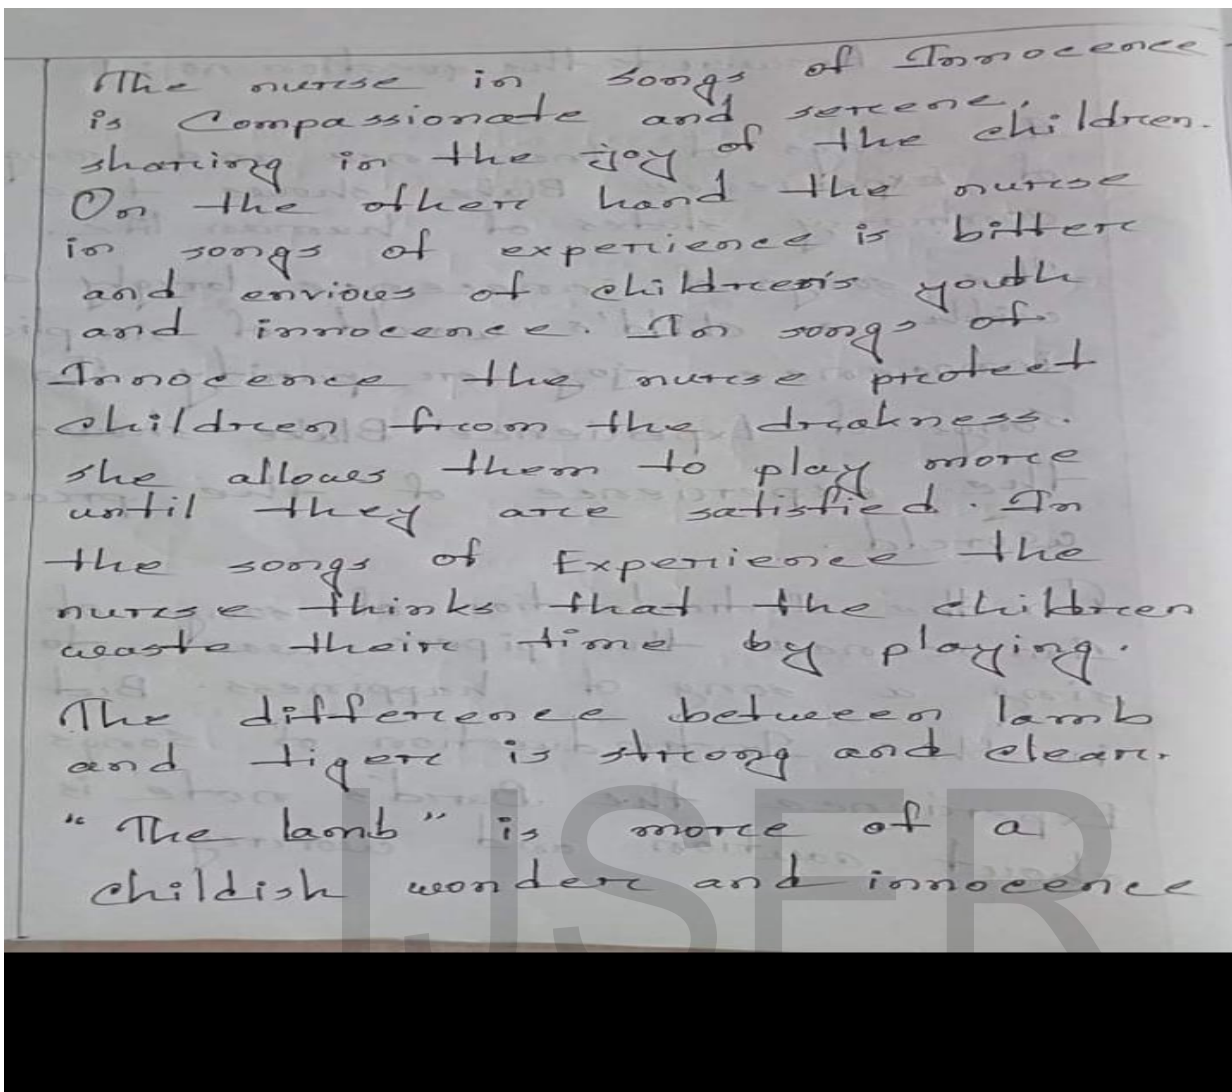 The nurse in songs of Innocence
is Compassionate and serene,
sharing in the joy of the children.
On the other hand the nurse
in songs of experience is bitter
and envious of children's youth
and innocence. In songs of
Innocence the nurse protect
children from the drakness.
she allows them to play more
until they are satisfied. In
the songs of Experience the
nurse thinks that the children
waste their time by playing.
The difference between lamb
and tiger is strong and clear.
"The lamb" is more of a
childish wonder and innocence
IJSER